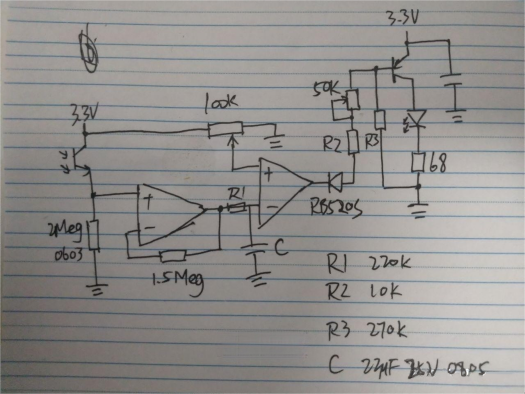 3.3V
3.3V
100K
50K
R2
R3
68
+
-
R1
+
-
RB520S
2Meg
0603
1.5Meg
C
R1 220K
R2 10K
R3 270K
C 22µF 25V 0805